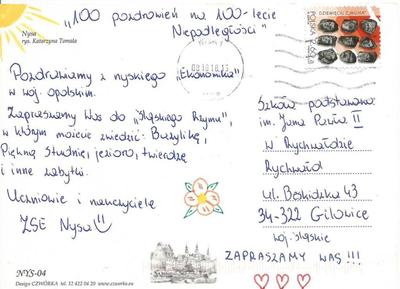 Nysa
rys. Katarzyna Tomala
"100 pozdrowień na 100-lecie
Niepodległości"
Pozdrawiamy z nyskiego "Ekonomika"
w woj. opolskim.
Zapraszamy Was do "Śląskiego Rzymu",
w którym możecie zwiedzić: Bazylikę,
Piękną Studnię, jezioro, twierdzę
i inne zabytki.
Uczniowie i nauczyciele
ZSE Nysa
NYS-04
Design CZWÓRKA tel. 12 422 04 20 www.czworka.eu
08.10.18.
POLSKA
Szkoła podstawowa
im. Jana Pawła II
w Rychwałdzie
Rychwałd
ul. Beskidzka 43
34-322 Gilowice
woj. śląskie
ZAPRASZAMY WAS !!!